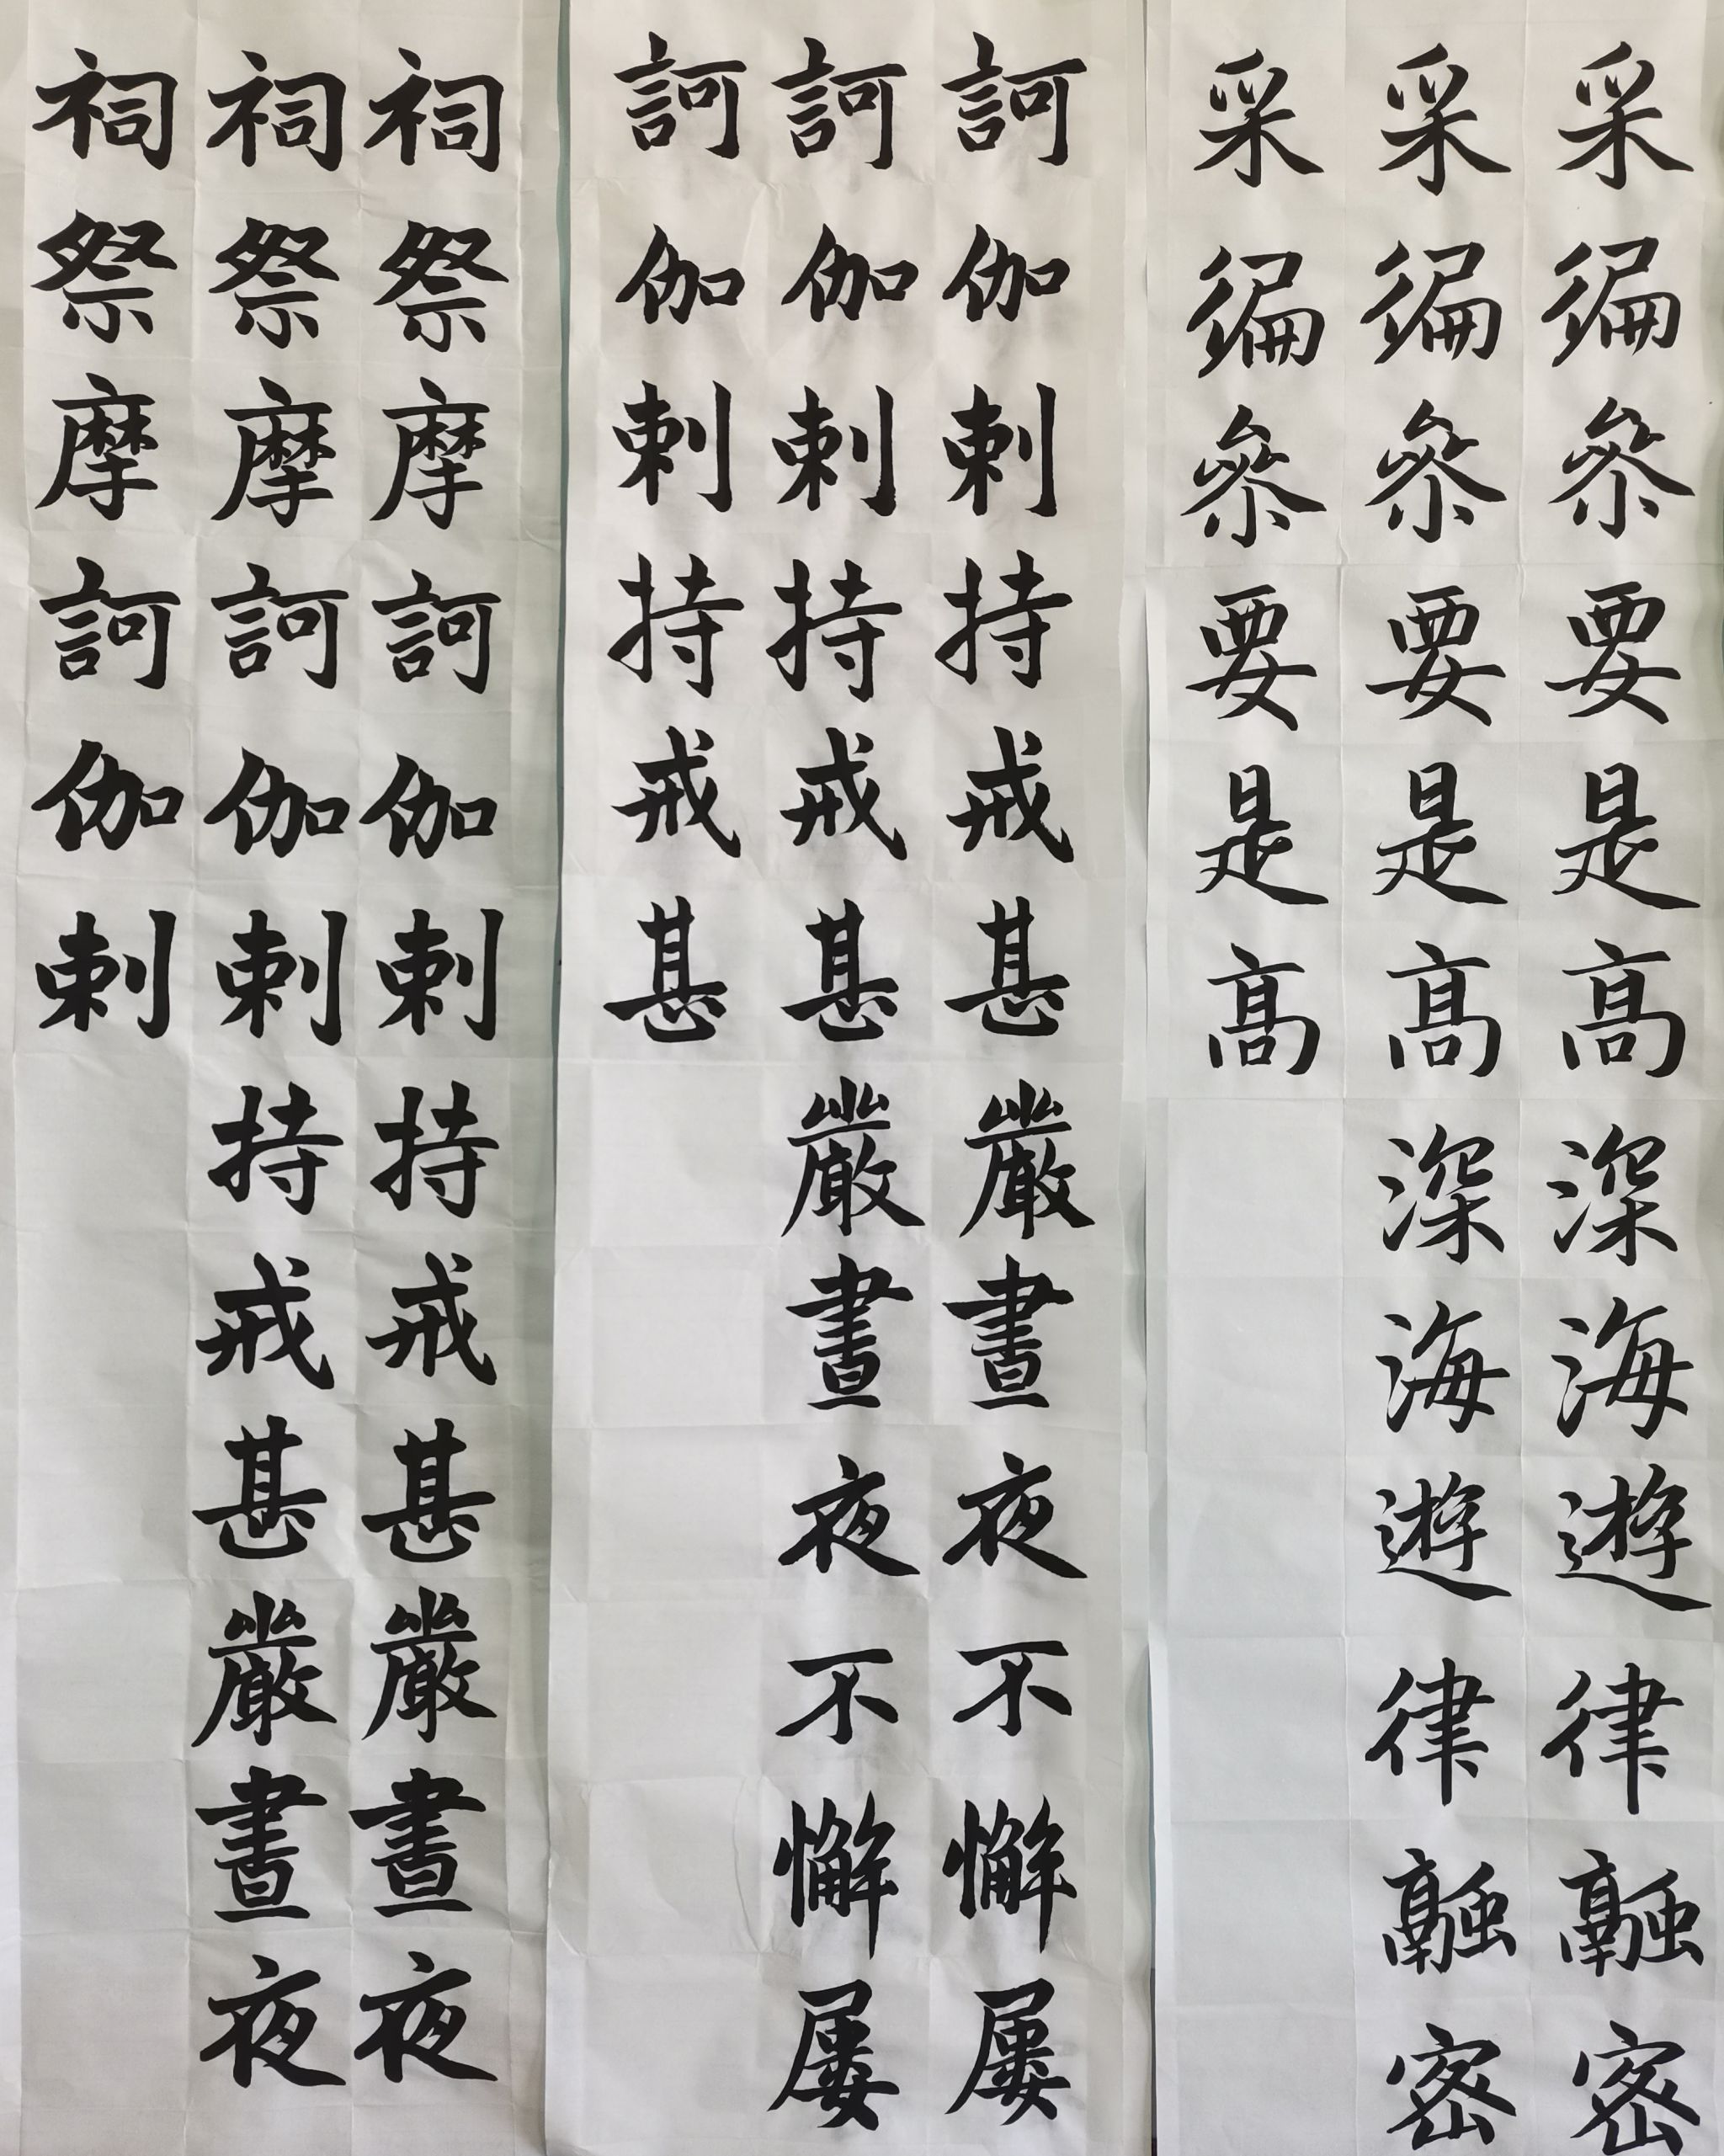 采徧參要是髙深海遊律融密
采徧參要是髙深海遊律融密
采徧參要是髙
訶伽剌持戒甚嚴晝夜不懈屢
訶伽剌持戒甚嚴晝夜不懈屢
訶伽剌持戒甚
祠祭摩訶伽剌持戒甚嚴晝夜
祠祭摩訶伽剌持戒甚嚴晝夜
祠祭摩訶伽剌